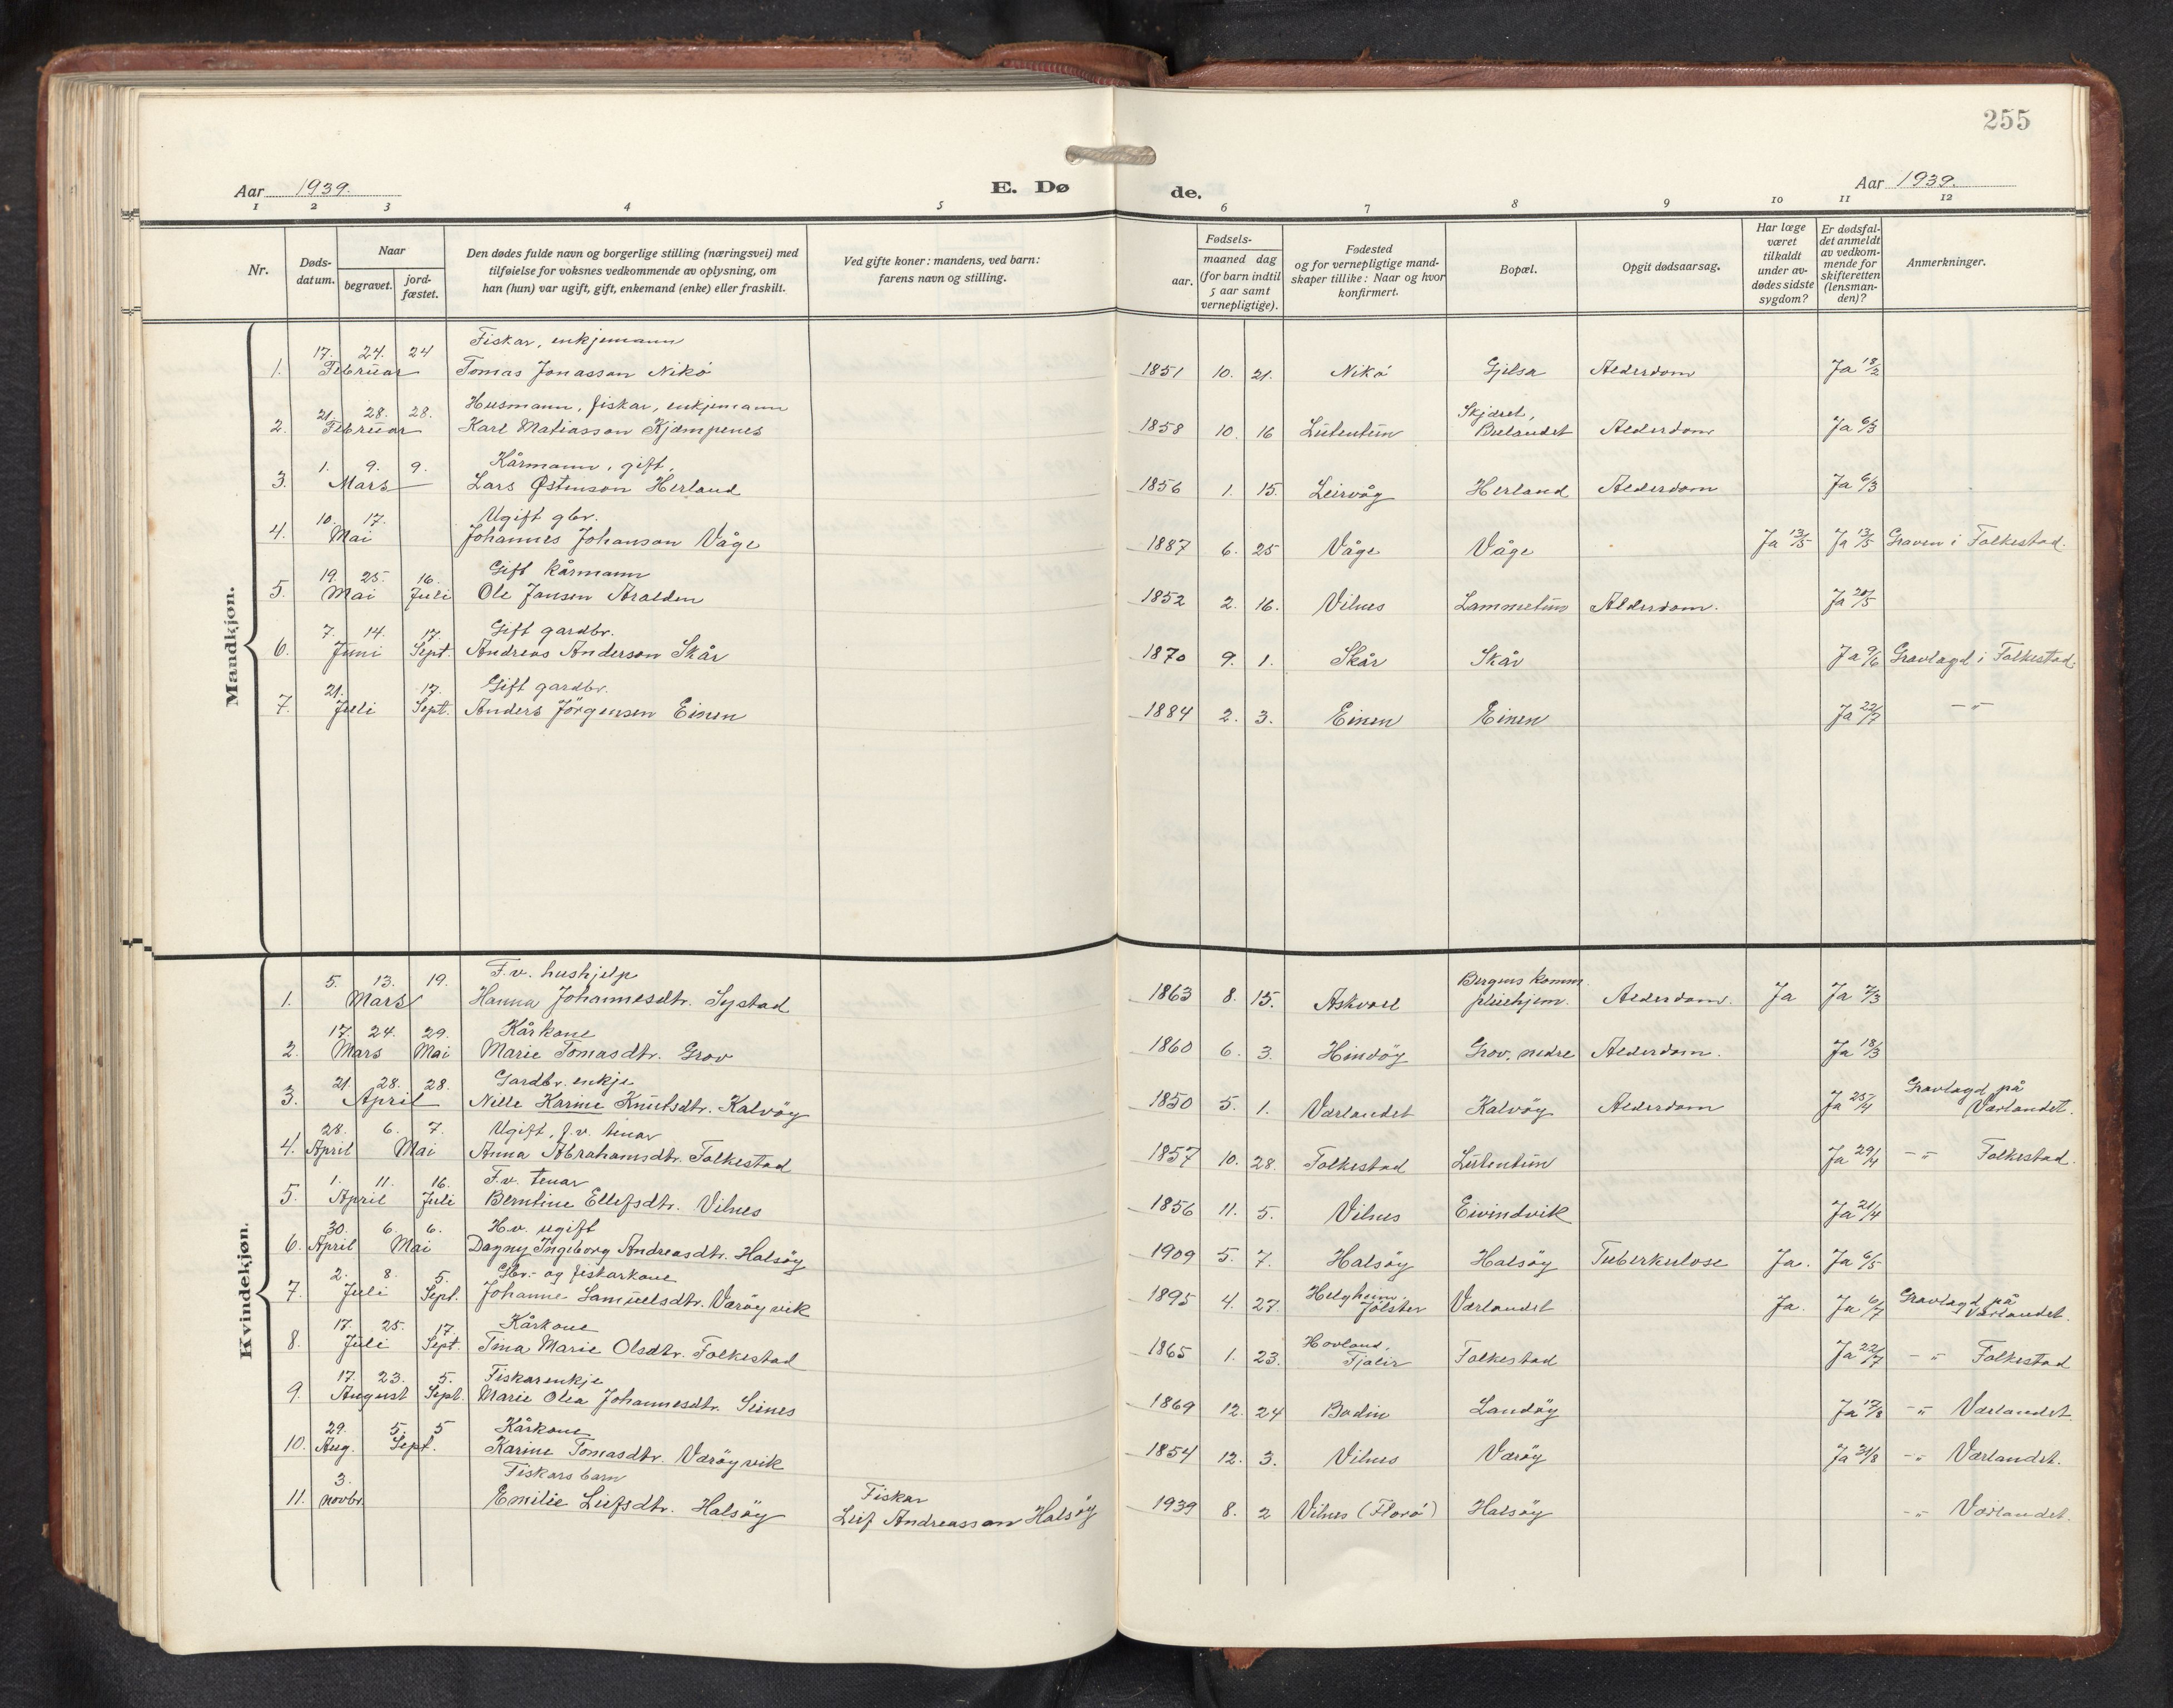 255
Aar 1939.
E. Dø de.
Aar 1939.
1 2 3 4 5 6 7 8 9 10 11 12
Nr.
Døds-
datum.
Naar
begravet.
jord-
fæstet.
Den dødes fulde navn og borgerlige stilling (næringsvei) med
tilføielse for voksnes vedkommende av oplysning, om
han (hun) var ugift, gift, enkemand (enke) eller fraskilt.
Ved gifte koner: mandens, ved barn:
farens navn og stilling.
Fødsels-
aar.
maaned dag
(for barn indtil
5 aar samt
vernepligtige).
Fødested
og for vernepligtige mand-
skaper tillike: Naar og hvor
konfirmert.
Bopæl.
Opgit dødsaarsag.
Har læge
været
tilkaldt
under av-
dødes sidste
sygdom?
Er dødsfal-
det anmeldt
av vedkom-
mende for
skifteretten
(lensman-
den)?
Anmerkninger.
Mandkjøn.
17. 24. 24 Fiskar, enkjemann
1. Februar Tomas Jonasson Nikö 1851 10. 21. Nikö Gjelsa Alderdom Ja 18/2
21. 28. 28. Husmann, fiskar, enkjemann Skjæret,
2. Februar Karl Matiasson Kjempenes 1858 10. 16 Lutentun Buelandet Alderdom Ja 6/3
1. 9. 9. Kårmann, gift,
3. Mars Lars Østenson Herland 1856 1. 15. Leirvåg Herland Alderdom Ja 6/3
10. 17. Ugift gbr.
4. Mai Johannes Johanson Våge 1887 6. 25 Våge Våge Ja 13/5 Ja 13/5 Graven i Folkestad.
19. 25. 16. Gift kårmann
5. Mai Juli Ole Jansen Aralden 1852 2. 16. Vilnes Lammetun Alderdom. Ja 20/5
7. 14. 17. Gift gardbr.
6. Juni Sept. Andreas Anderson Skår 1870 9. 1. Skår Skår Ja 9/6 Gravlagd i Folkestad.
21. 17. Gift gardbr.
7. Juli Sept. Anders Jörgensen Einen 1884 2. 3. Einen Einen Ja 22/7 -"-
Kvindekjøn.
5. 13. 19. F.v. hushjelp Bergens komm.
1. Mars Hanna Johannesdtr. Systad 1863 8. 15. Askvoll pleiehjem. Alderdom. Ja Ja 7/3
17. 24. 29. Kårkone
2. Mars Mai Marie Tomasdtr. Grov 1860 6. 3. Hindöy Grov, nedre Alderdom. Ja 18/3
21. 28. 28. Gardbr. enkje Gravlagd på
3. April Nille Karine Knutsdtr. Kalvöy 1850 5. 1. Værlandet Kalvöy Alderdom Ja 25/4 Værlandet.
28. 6. 7. Ugift, f.v. tenar
4. April Mai Anna Abrahamsdtr. Folkestad 1857 10. 28. Folkestad Lutentun Ja 29/4 -"- Folkestad.
1. 11. 16. F.v. tenar
5. April Juli Berntine Ellefsdtr. Vilnes 1856 11. 5. Vilnes Eivindvik Ja 21/4
30. 6. 6. H.v. ugift
6. April Mai Dagny Ingeborg Andreasdtr. Halsöy 1909 5. 7. Halsöy Halsöy Tuberkulose Ja. Ja 6/5
2. 8. 5. Gbr.- og fiskarkone Helgheim, Gravlagd på
7. Juli Sept. Johanne Samuelsdtr. Værøyvik 1895 4. 27. Jölster Værlandet Ja. Ja 6/7 Værlandet.
17. 25. 17. Kårkone Hovland,
8. Juli Sept. Tina Marie Olsdtr. Folkestad 1865 1. 23. Fjalir Folkestad Ja 22/7 -"- Folkestad
17. 23. 5. Fiskarenkje
9. August Sept. Marie Olea Johannesdtr. Seines 1869 12. 24 Bodin Landöy Ja 17/8 -"- Værlandet
29. 5. 5 Kårkone
10. Aug. Sept. Karine Tomasdtr. Værøyvik 1854 12. 3. Vilnes Værøy Ja 31/8 -"- Værlandet.
3. Fiskars barn Fiskar
11. novbr. Emilie Leifsdtr. Halsöy Leif Andreasson Halsöy 1939 8. 2 Vilnes (Florö) Halsöy -"- Værlandet.